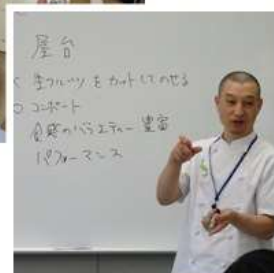 屋台
生フルーツをカットしてのせる
コンポート
食感のバラエティー豊富
パフォーマンス